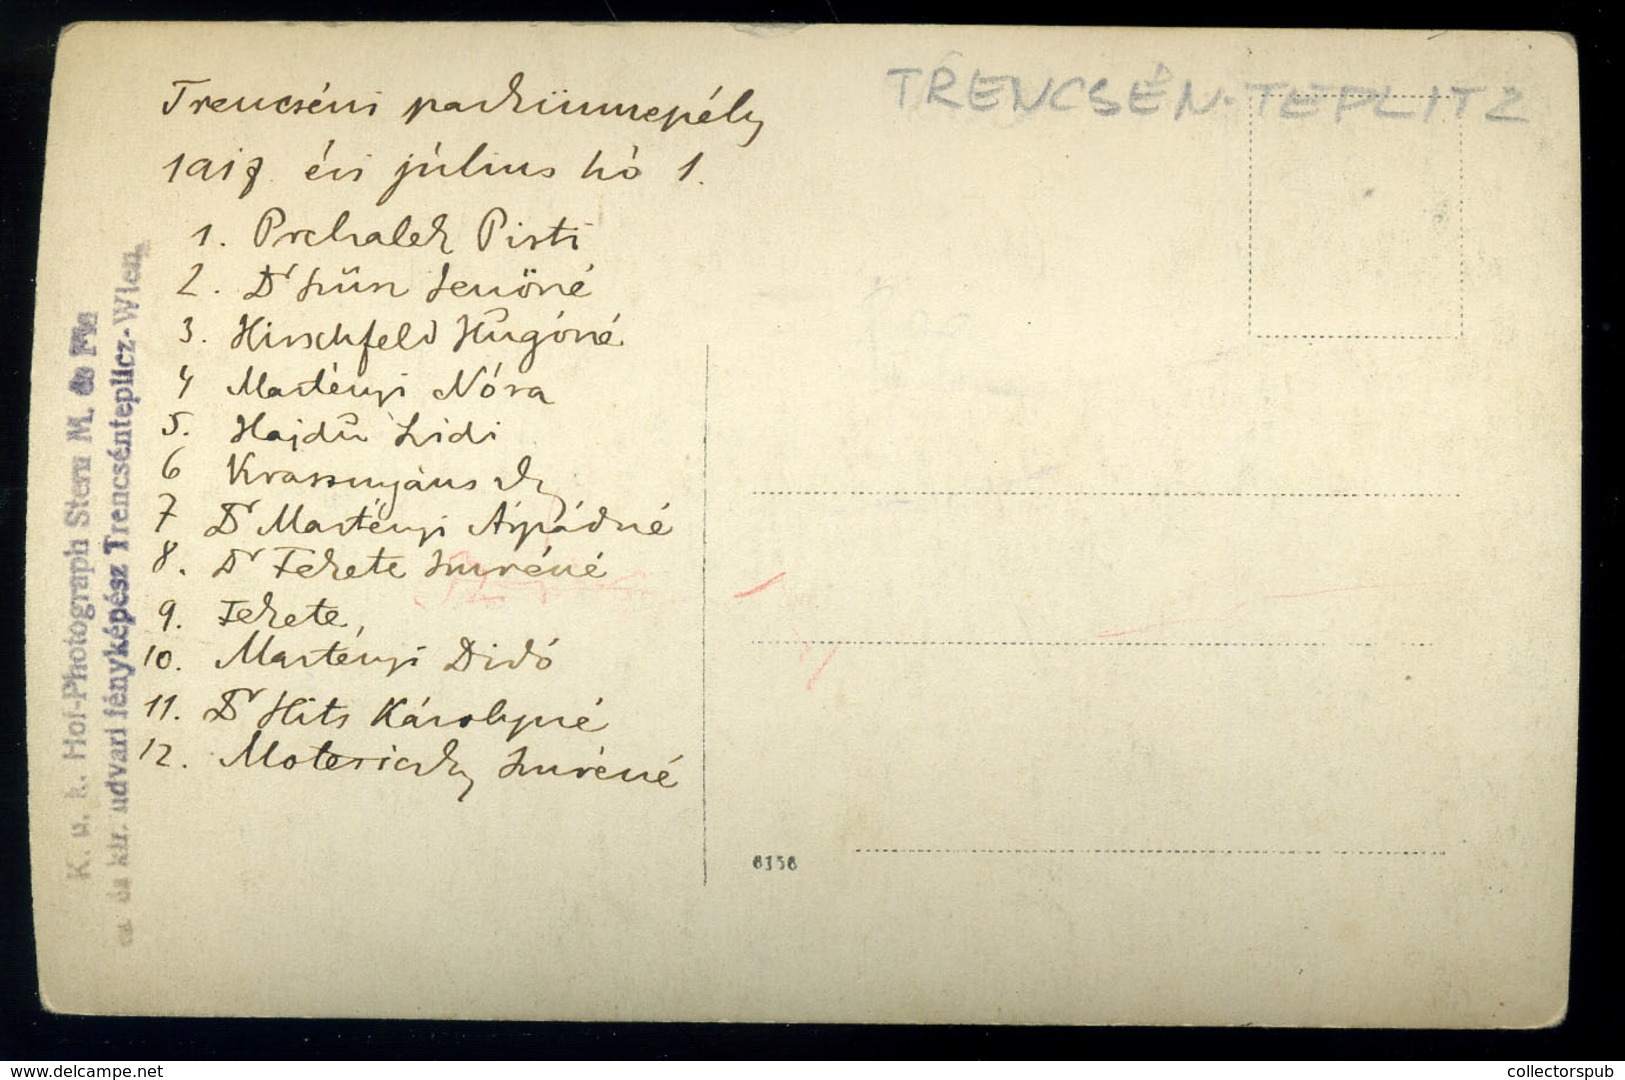 Trencséni parkünnepély
TRENCSÉN-TEPLITZ
évi július hó 1.
1. Prchalek Pisti
2. Dr
3. Hirschfeld Hugóné
4 Martényi Nóra
5. Hajdu Lidi
6
7 Dr Martényi Árpádné
8. Dr Fekete Imréné
9. Fekete
10. Martényi Didó
11. Dr Hits Károlyné
12. Motesiczky Imréné
K. u. k. Hof-Photograph Stern M. és Fia
cs. és kir. udvari fényképész Trencsénteplicz-Wien
6156
www.delcampe.net
collectorspub